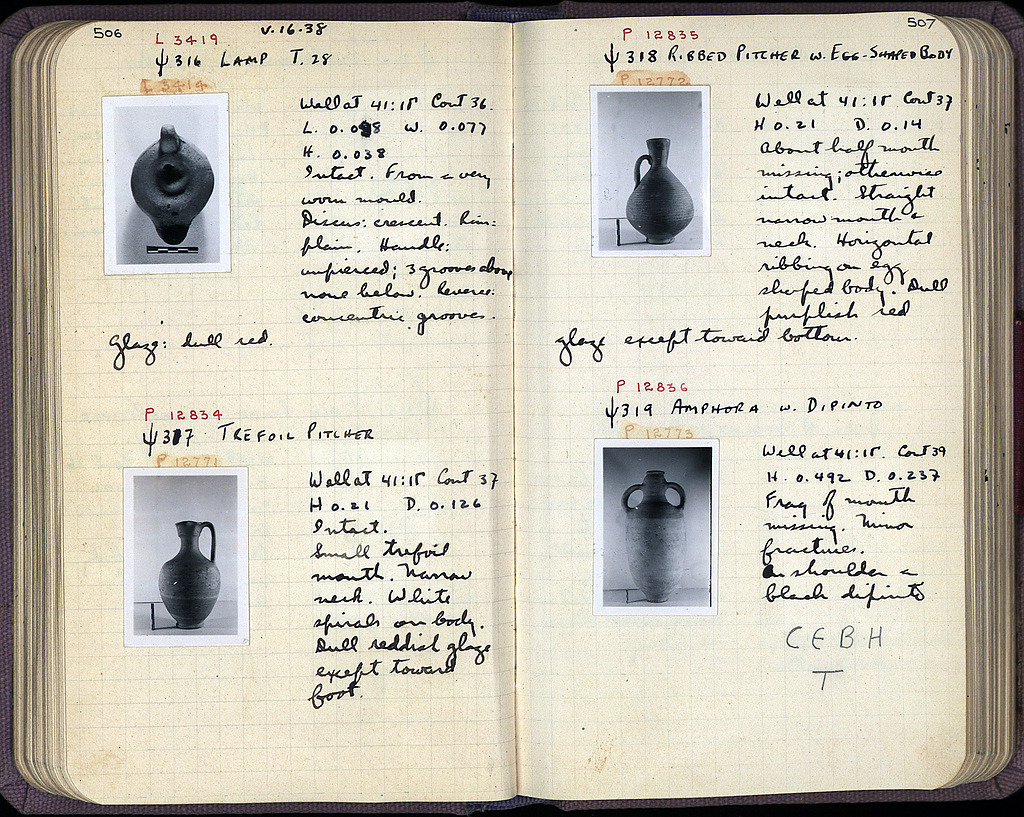 506
V.16.38
L 3419
ψ316 LAMP T. 28
L 3414
Well at 41:ΙΓ Cont 36.
L. 0.098 W. 0.077
H. 0.038
Intact. From a very
worn mould.
Discus: crescent. Rim:
plain. Handle:
unpierced; 3 grooves above
none below. Reverse:
concentric grooves.
Glaze: dull red.
P 12834
ψ317 TREFOIL PITCHER
P 12771
Well at 41:ΙΓ Cont 37
H 0.21 D. 0.126
Intact.
Small trefoil
mouth. Narrow
neck. White
spirals on body.
Dull reddish glaze
except toward
foot.
507
P 12835
ψ318 RIBBED PITCHER W. EGG-SHAPED BODY
P 12772
Well at 41:ΙΓ Cont 37
H 0.21 D. 0.14
About half mouth
missing; otherwise
intact. Straight
narrow mouth &
neck. Horizontal
ribbing on egg
shaped body. Dull
purplish red
glaze except toward bottom.
P 12836
ψ319 AMPHORA W. DIPINTO
P 12773
Well at 41:ΙΓ. Cont 39
H. 0.492 D. 0.237
Frag of mouth
missing. Minor
fractures.
On shoulder a
black dipinto
C E B H
T